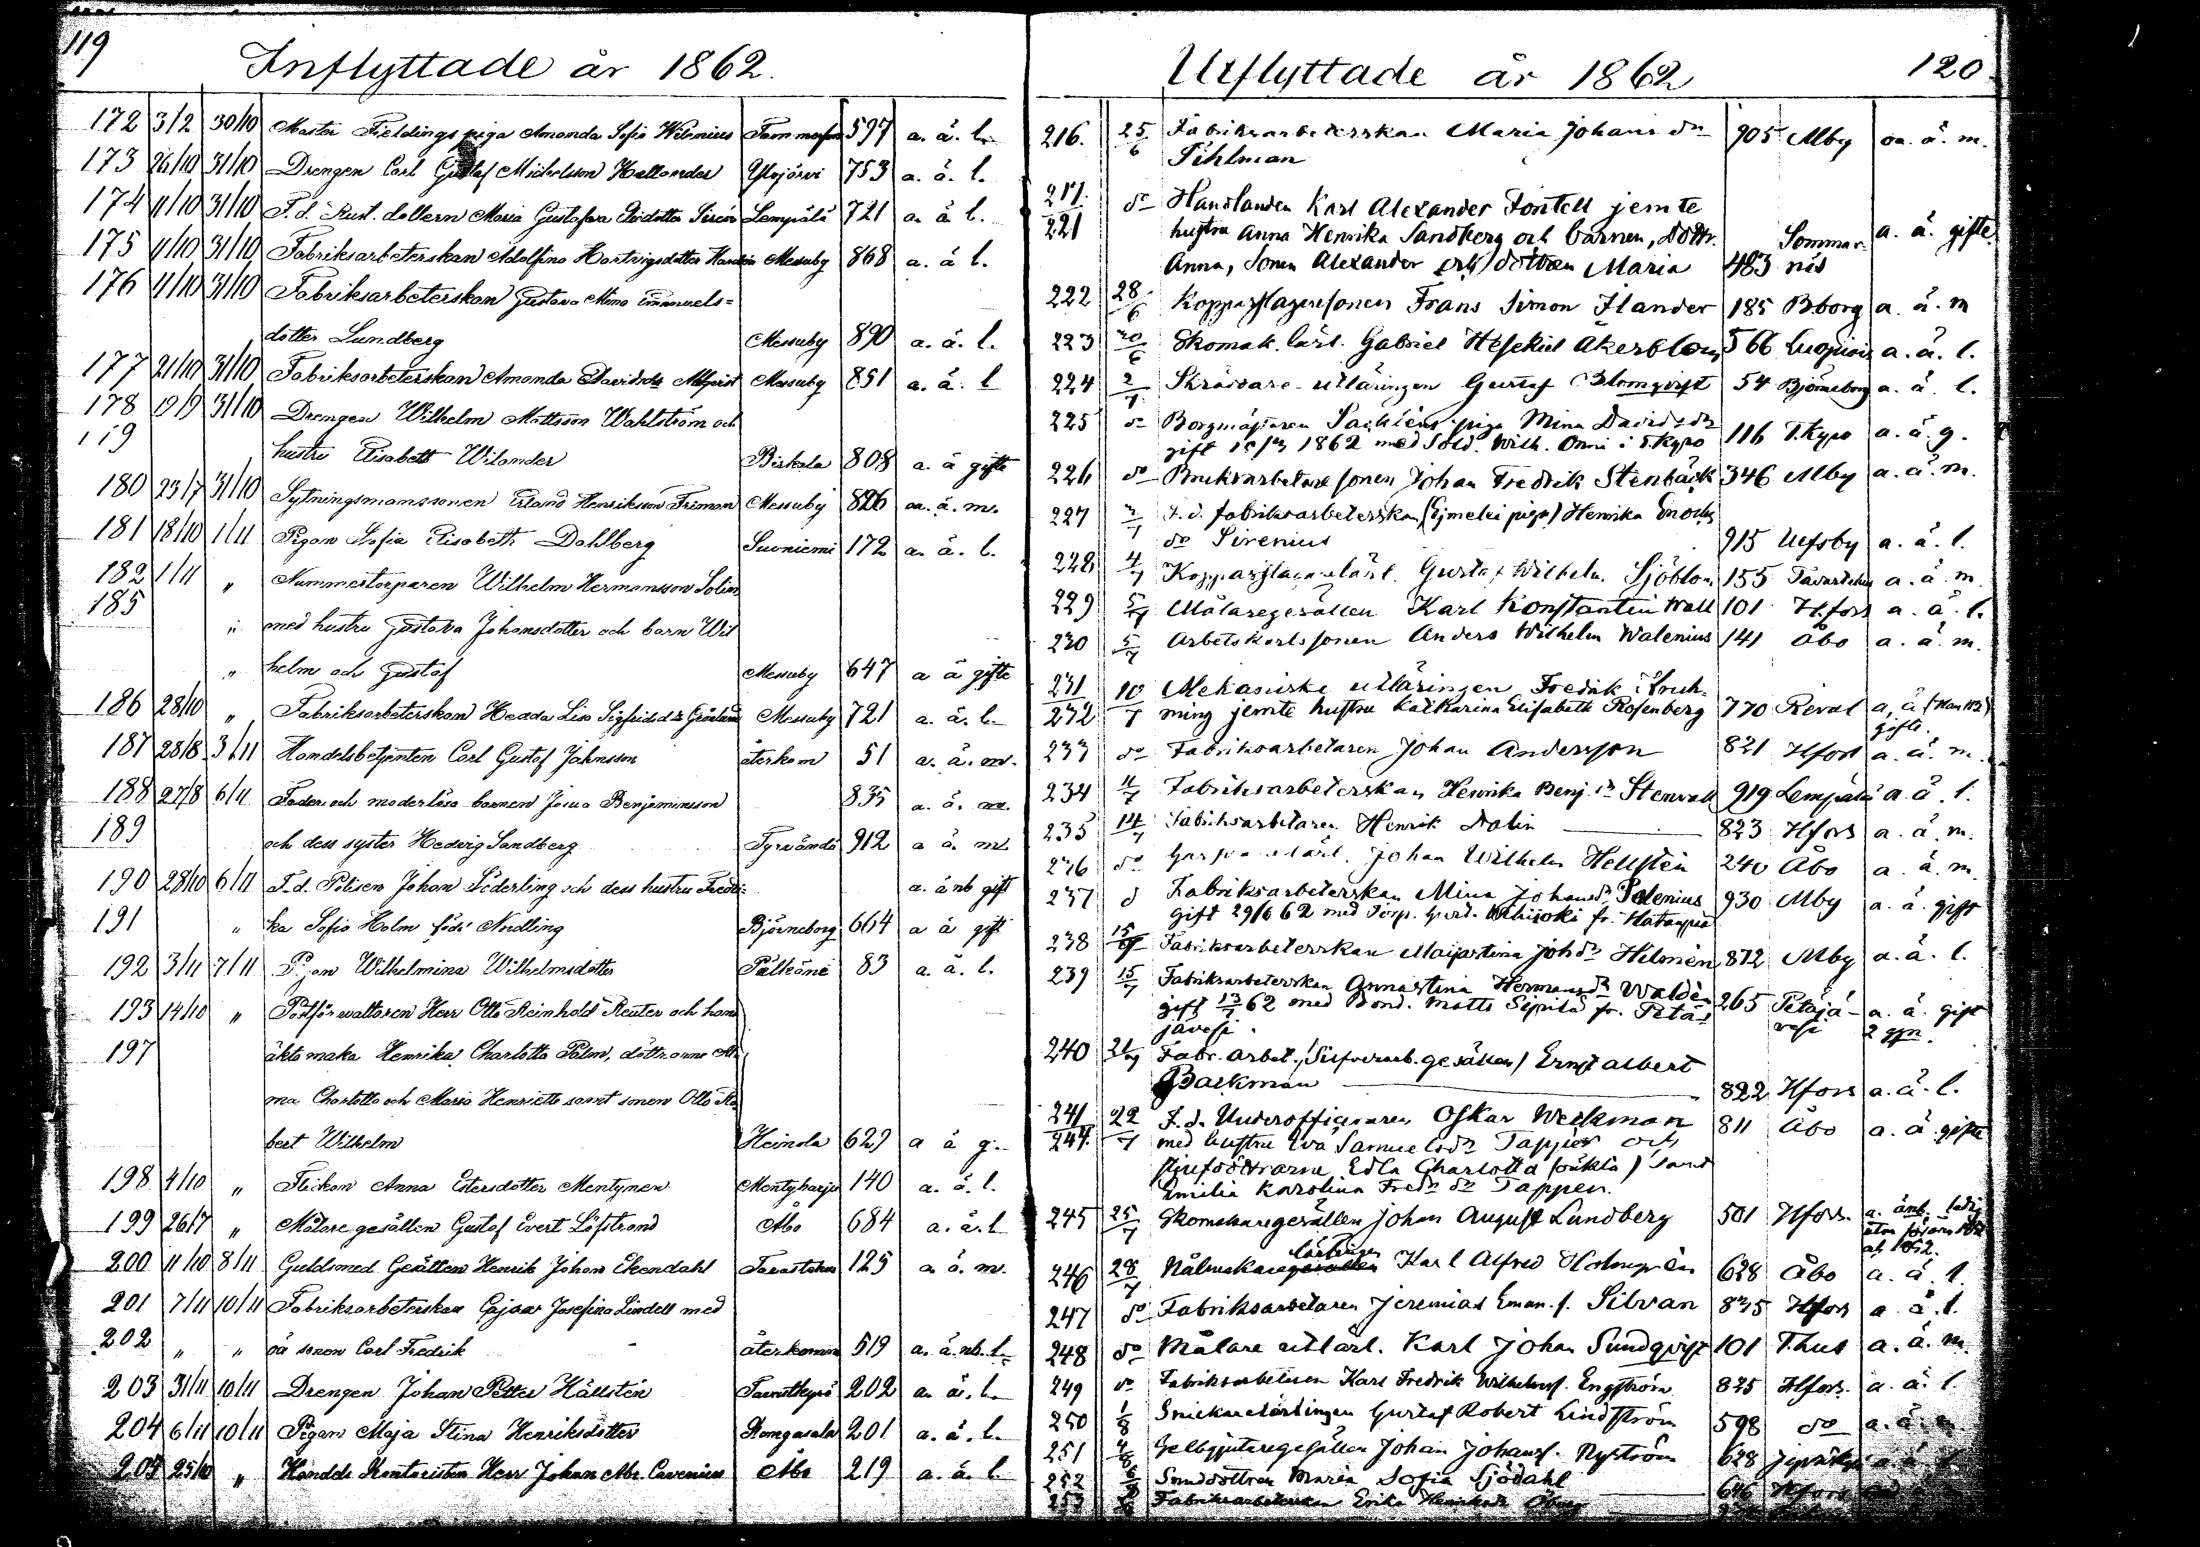 119
Inflyttade år 1862.
172 3/2 30/10 Master Fieldings piga Amanda Sofia Wilenius Tammerfors 597 a. ä. l.
173 26/10 31/10 Drengen Carl Gustaf Michelsson Hallander Ylöjärvi 753 a. ä. l.
174 11/10 31/10 F.d. Rust. dottern Maria Gustafva Sirén Lempälä 721 a. ä. l.
175 11/10 31/10 Fabriksarbeterskan Adolfina Hartvigsdotter Messuby 868 a. ä. l.
176 11/10 31/10 Fabriksarbeterskan Gustava Mina Emanuels=
dotter Lundberg Messuby 890 a. ä. l.
177 21/10 31/10 Fabriksarbeterskan Amanda Davidsdr Messuby 851 a. ä. l
178 19/9 31/10 Drengen Wilhelm Mattsson Wahlström och
179 hustru Elisabeth Wilander Birkala 808 a. ä gifte
180 23/7 31/10 Sytningsmanssonen Erland Henriksson Friman Messuby 826 a. ä. m.
181 18/10 1/11 Pigan Sofia Elisabeth Dahlberg Suoniemi 172 a. ä. l.
182 1/11 " Nummertorparen Wilhelm Hermansson Solin
185 " med hustru Gustava Johansdotter och barn Wil
" helm och Gustaf Messuby 647 a ä gifte
186 28/10 " Fabriksarbeterskan Hedda Lisa Sigfridsdr Grönlund Messuby 721 a. ä. l.
187 28/8 3/11 Handelsbetjenten Carl Gustaf Johnsson återkom 51 a. ä. m.
188 27/8 6/11 Fader och moderlösa barnen Josua Benjaminsson 835 a. ä. m.
189 och dess syster Hedvig Sandberg Tyrvändö 912 a ä. m.
190 28/10 6/11 F.d. Polisen Johan Söderling och dess hustru Fredri= a. ä nb gift
191 " ka Sofia Holm född Nudling Björneborg 664 a ä gift
192 3/11 7/11 Pigan Wilhelmina Wilhelmsdotter Pälkäne 83 a. ä. l.
193 14/10 " Postförvaltaren Herr Otto Reinhold Reuter och hans
197 äkta maka Henrika Charlotta Palm, döttrarne Al
ma Charlotta och Maria Henriette samt sonen Otto Ro
bert Wilhelm Heinola 629 a ä g.
198 4/10 " Flickan Anna Estersdotter Mentynen Mentyharju 140 a. ä. l.
199 26/7 " Målare gesällen Gustaf Evert Löfstrand Åbo 684 a. ä. l
200 11/10 8/11 Guldsmed Gesällen Henrik Johan Ekendahl Tavastehus 125 a. ä. m.
201 7/11 10/11 Fabriksarbeterskan Cajsa Josefina Lindell med
202 " " oä sonen Carl Fredrik återkommo 519 a. ä nb. l.
203 31/11 10/11 Drengen Johan Petter Hällstén Tavastkyrö 202 a. ä. l.
204 6/11 10/11 Pigan Maja Stina Henriksdotter Kangasala 201 a. ä. l.
205 25/10 " Handels Kontoristen Herr Johan Abr. Cavenius Åbo 219 a. ä. l.
Utflyttade år 1862
120
216. 25/6 Fabriksarbeterskan Maria Johans dr
Pihlman 905 Mby a. ä. m.
217. do Handlanden Karl Alexander Fontell jemte
221 hustru Anna Henrika Sandberg och barnen, Dottr.
Anna, Sonen Alexander Dottren Maria 483 Sommar-näs a. ä. gifte
222 28/6 Kopparslagaresonen Frans Simon Ilander 185 Bborg a. ä. m
223 30/6 Skomak. lärl. Gabriel Hesekiel Åkerblom 566 Luopiois a. ä. l.
224 2/7 Skräddare utläringen Gustaf Blomqvist 54 Björneborg a. ä. l.
225 do Borgmästaren piga Mina Davidsdr
gift 1862 med Sold. Wilh. i T.kyro 116 T.kyro a. ä. g.
226 do Bruksarbetare sonen Johan Fredrik Stenbäck 346 Mby a. ä. m.
227 3/7 F.d. fabriksarbeterskan piga) Henrika Enochs
do Sirenius 915 Ulfsby a. ä. l.
228 4/7 Kopparslagarelärl. Gustaf Wilhelm Sjöblom 155 Tavastehus a. ä. m.
229 5/7 Målaregesällen Karl Konstantin Wall 101 Hfors a. ä. l.
230 5/7 Arbetskarlssonen Anders Wilhelm Walenius 141 Åbo a. ä. m.
231 10/7 Mekaniske utläringen Fredrik
232 ming jemte hustru Katharina Elisabeth Rosenberg 770 Reval a. ä gifte.
233 do Fabriksarbetaren Johan Andersson 821 Hfors a. ä. m.
234 11/7 Fabriksarbeterskan Henrika Benj. dr Stenvall 919 Lempälä a. ä. l.
235 14/7 Fabriksarbetaren Henrik Dalin 823 Hfors a. ä. m.
236 do Garfvarelärl. Johan Wilhelm Hellstén 240 Åbo a. ä. m.
237 d Fabriksarbeterskan Mina Johansdr Selenius 930 Mby a. ä. gift
gift 29/6 62 med Torp. Gust. fr. Hatanpää
238 15/7 Fabriksarbeterskan Majastina Johdr Helmén 872 Mby a. ä. l.
239 15/7 Fabriksarbeterskan Annastina Hermansdr Waldén
gift 13/7 62 med Bond. Matts Sipilä fr. Petä- 265 Petäjä-vesi a. ä. gift
jävesi.
240 21/7 Fabr. arbet. (Silfverarb. gesällen) Ernst Albert
Backman 822 Hfors a. ä. l.
241 22/7 F.d. Underofficeraren Oskar Weckman 811 Åbo a. ä. gifte
244. med hustru Eva Samuelsdr Tappér och
stjufdöttrarne Edla Charlotta (oäkta) samt
Emilia Karolina Fredr dr Tappér.
245 25/7 Skomakaregesällen Johan August Lundberg 501 Hfors. a. ä nb. ledig
246 28/7 Nålmakare lärlingen Karl Alfred Holmqvén 628 Åbo a. ä. l.
247 do Fabriksarbetaren Jeremias Eman. s. Silvan 835 Hfors a. ä. l.
248 do Målare utlärl. Karl Johan Sundqvist 101 T.hus a. ä. m.
249 do Fabriksarbetaren Karl Fredrik Wilhelmss. Engström 825 Hfors. a. ä. l.
250 1/8 Snickarelärlingen Gustaf Robert Lindström 598 do a. ä. m
251 4/8 Gelbgjutaregesällen Johan Johanss. Nyström 628
252 Smeddottren Maria Sofia Sjödahl 646 Hfors
253 Fabriksarbeterskan Erika Henriksdr Öberg